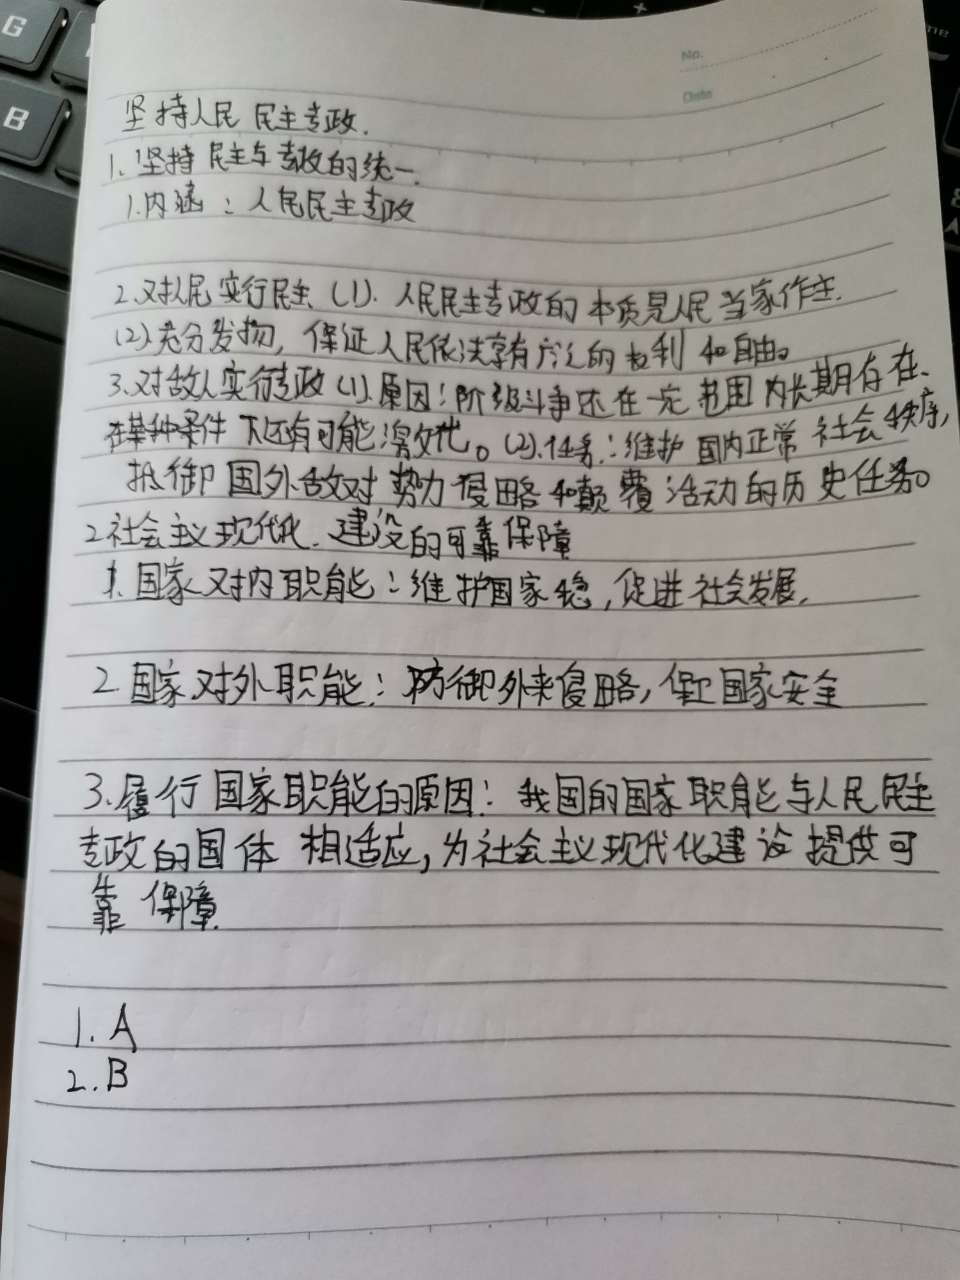 No.
Date
坚持人民民主专政.
1. 坚持民主与专政的统一.
1.内涵：人民民主专政
2.对人民实行民主 (1). 人民民主专政的本质是人民当家作主.
(2).充分发扬, 保证人民依法享有广泛的权利和自由。
3.对敌人实行专政 (1).原因：阶级斗争还在一定范围内长期存在、
在某种条件下还有可能激化。(2).任务：维护国内正常社会秩序,
抵御国外敌对势力侵略和颠覆活动的历史任务。
2.社会主义现代化.建设的可靠保障
1.国家对内职能：维护国家稳,促进社会发展.
2.国家对外职能：防御外来侵略,保卫国家安全
3.履行国家职能的原因：我国的国家职能与人民民主
专政的国体相适应,为社会主义现代化建设提供可
靠保障.
1.A
2.B
G
B